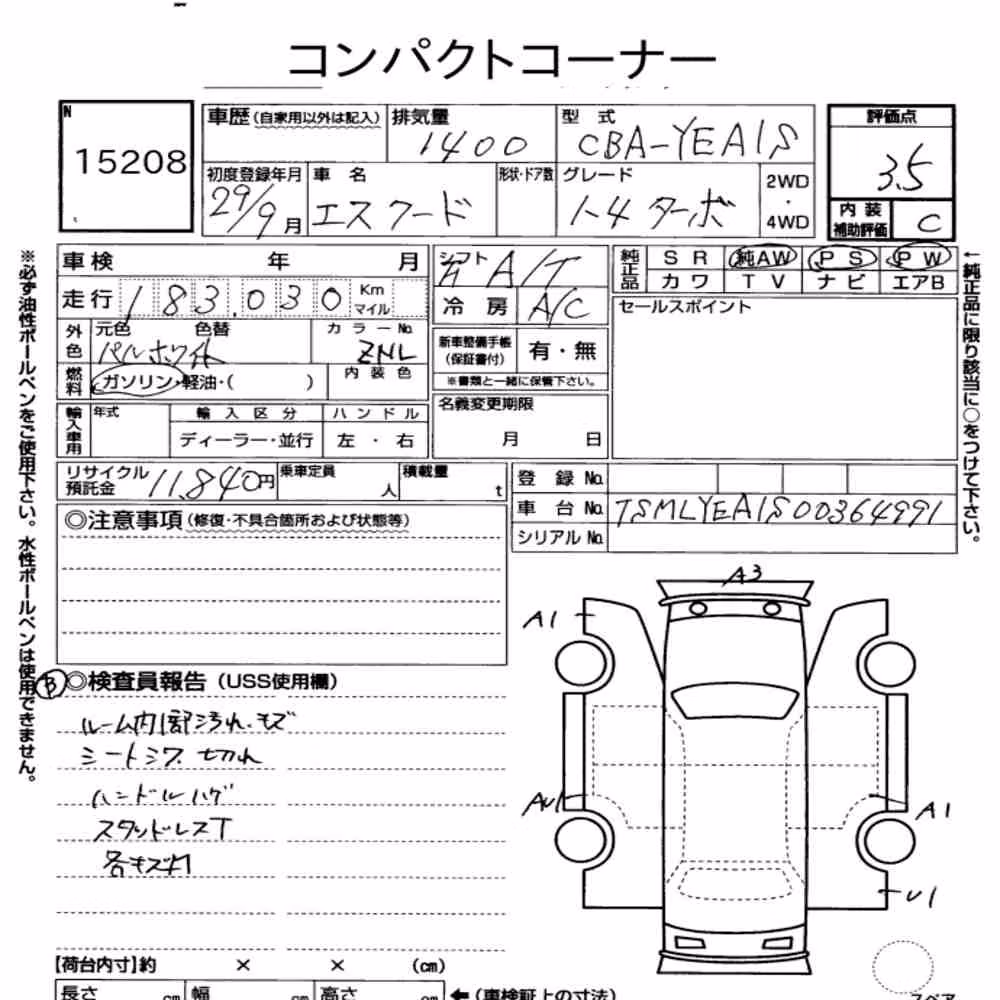 コンパクトコーナー
N
15208
車歴(自家用以外は記入)
排気量
1400
型式
CBA-YEA1S
評価点
3.5
初度登録年月
29/9月
車名
エスクード
形状・ドア数
グレード
1.4 ターボ
2WD
・
4WD
内装
補助評価
C
※必ず油性ボールペンをご使用下さい。水性ボールペンは使用できません。
車検 年 月
走行 183,030 Km
マイル
シフト
A/T
冷房
A/C
純正品
SR 純AW PS PW
カワ TV ナビ エアB
←純正品に限り該当に○をつけて下さい。
外色
元色 色替
パールホワイト
カラーNo.
ZNL
新車整備手帳
(保証書付)
有・無
※書類と一緒に保管下さい。
セールスポイント
燃料
ガソリン・軽油・( )
内装色
輸入車用
年式
輸入区分
ディーラー・並行
ハンドル
左・右
名義変更期限
月 日
リサイクル
預託金
11,840円
乗車定員
人
積載量
t
登録No.
車台No. TSMLYEA1S00364991
シリアルNo.
◎注意事項(修復・不具合箇所および状態等)
◎検査員報告(USS使用欄)
ルーム内部汚れ・キズ
シートシワ 切れ
ハンドルハゲ
スタッドレスT
各キズ
A3
A1
A1
U1
【荷台内寸】約 × × (cm)
長さ cm 幅 cm 高さ cm ←(車検証上の寸法)
スペア